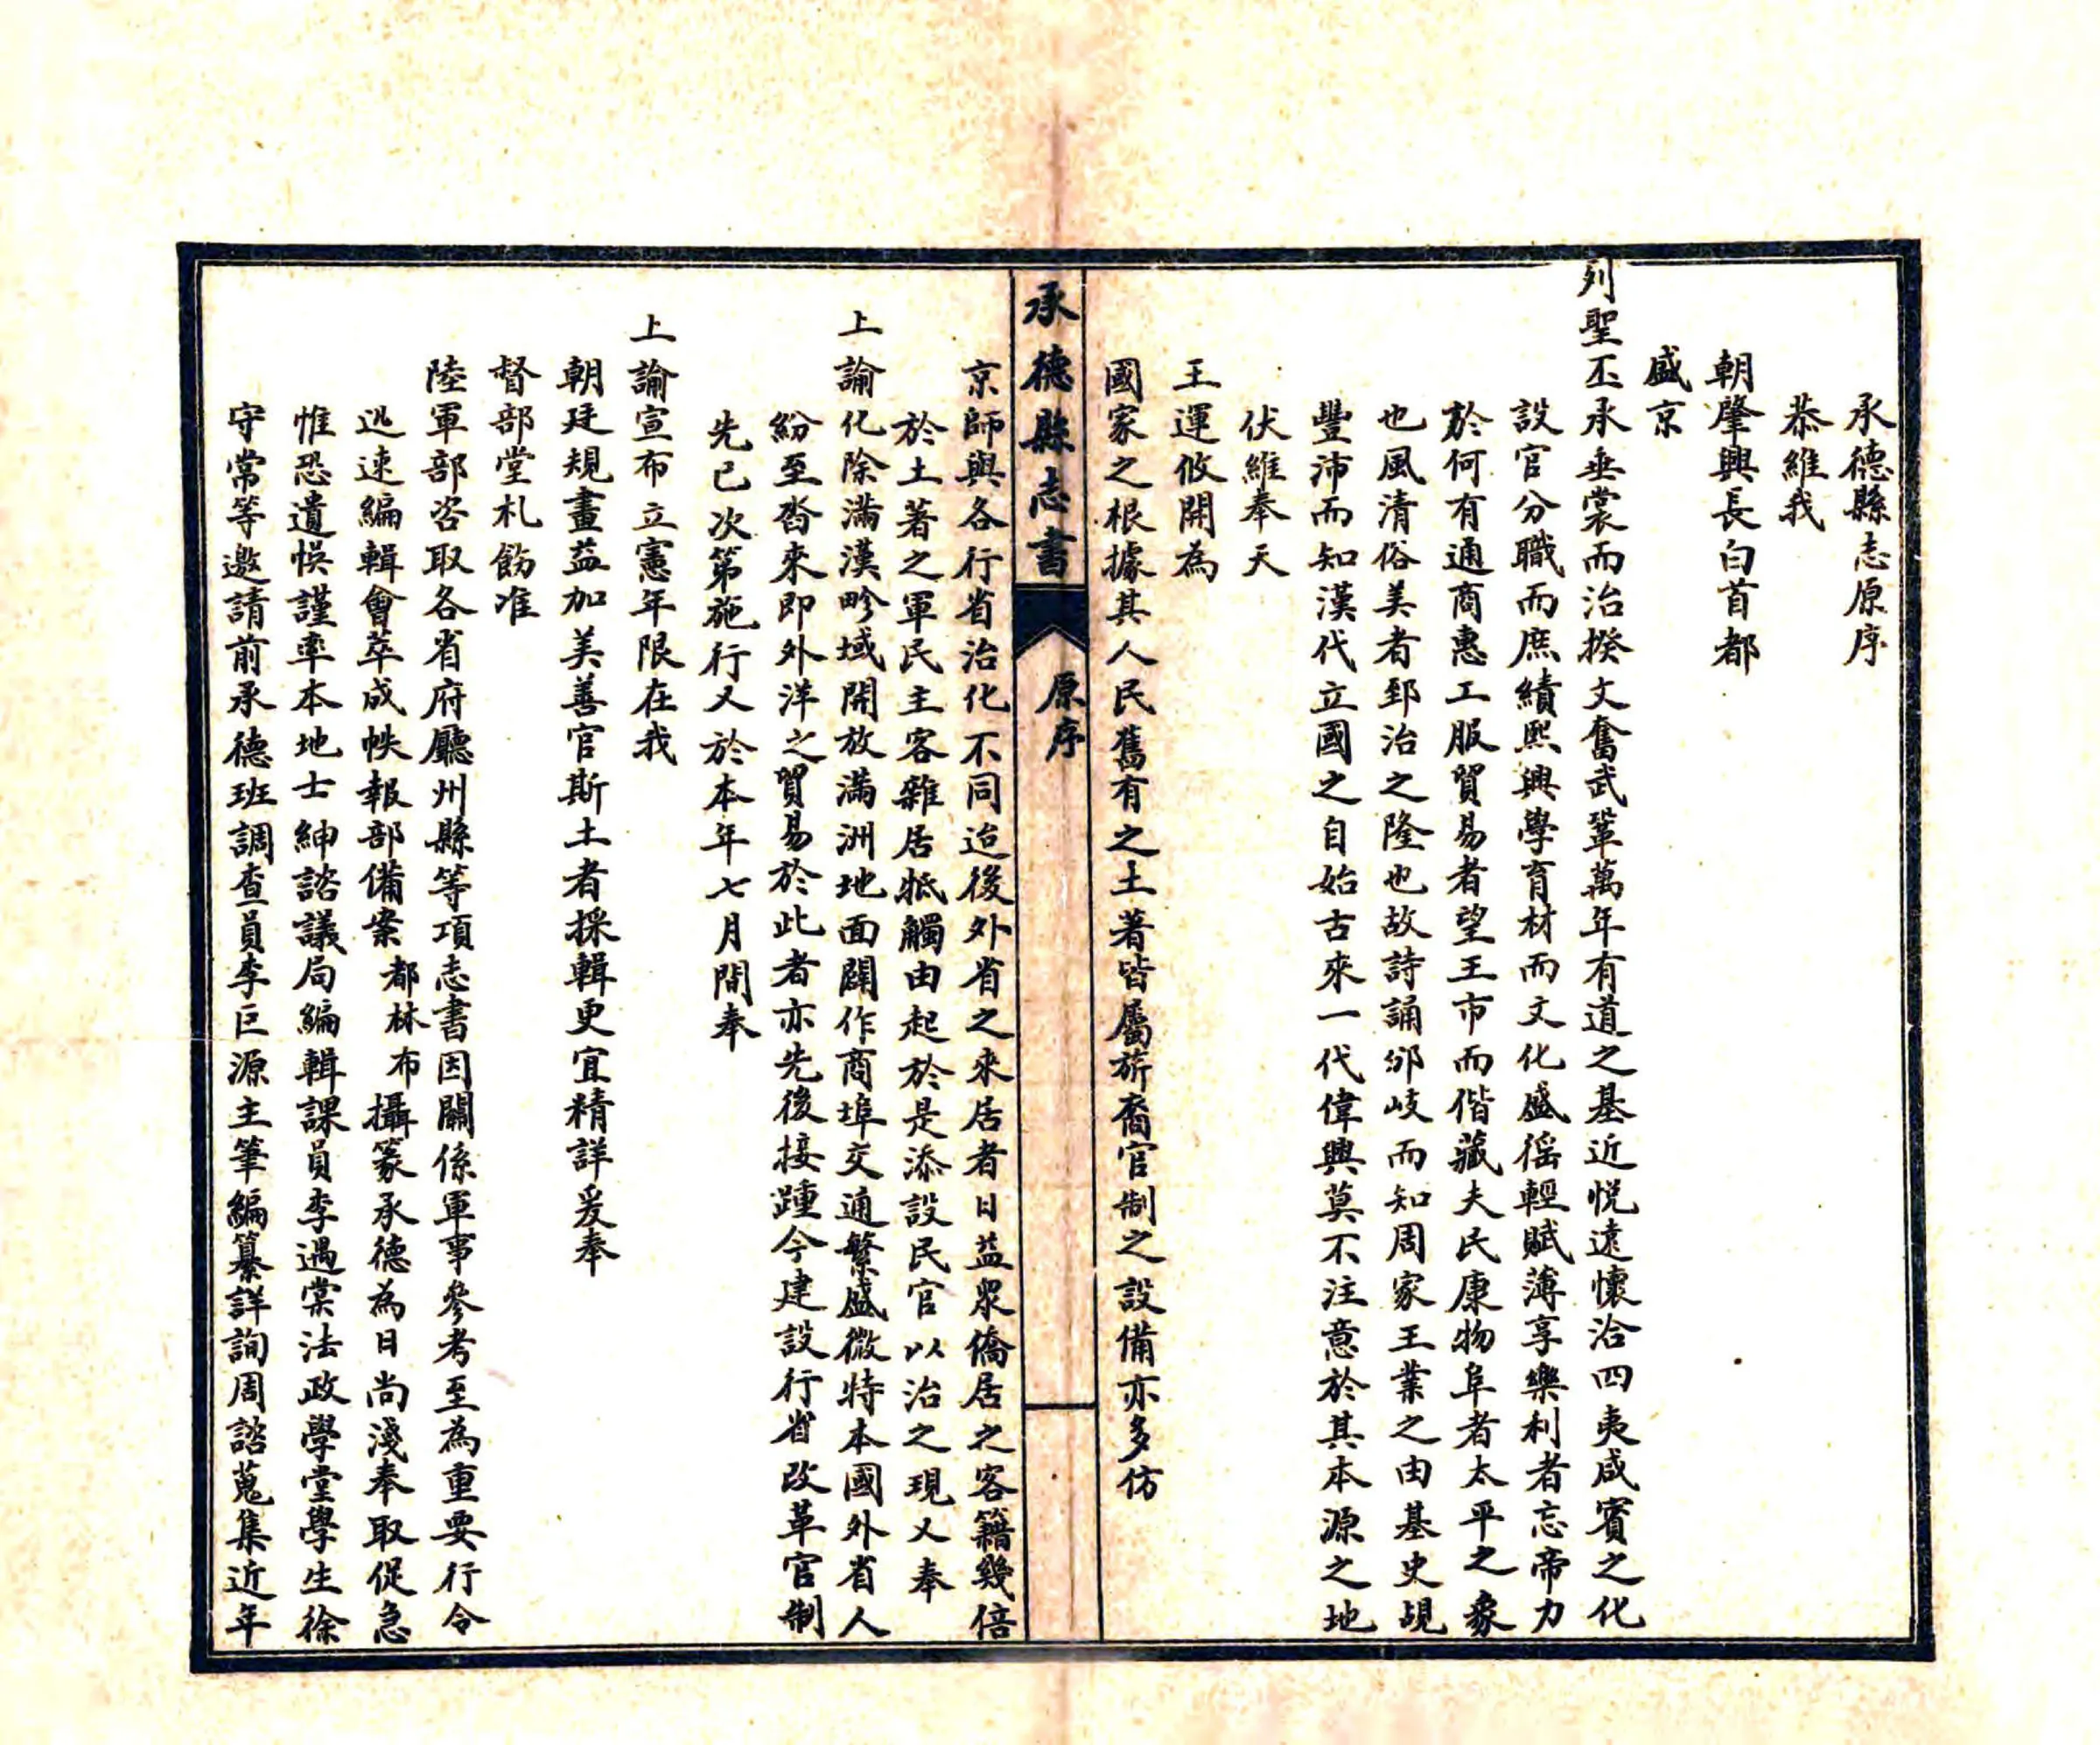 承德縣志原序
恭維我
朝肇興長白首都
盛京
列聖丕承垂裳而治揆文奮武鞏萬年有道之基近悅遠懷洽四夷咸賓之化
設官分職而庶績熙興學育材而文化盛徭輕賦薄享樂利者忘帝力
於何有通商惠工服賈易者望王市而偕藏夫民康物阜者太平之象
也風清俗美者郅治之隆也故詩誦邠岐而知周家王業之由基史覘
豐沛而知漢代立國之自始古來一代偉興莫不注意於其本源之地
伏維奉天
王運攸開為
國家之根據其人民舊有之土著皆屬旂裔官制之設備亦多仿
承德縣志書 原序
京師與各行省治化不同迨後外省之來居者日益衆僑居之客籍幾倍
於土著之軍民主客雜居牴觸由起於是添設民官以治之現又奉
上諭化除滿漢畛域開放滿洲地面闢作商埠交通繁盛微特本國外省人
紛至沓來即外洋之貿易於此者亦先後接踵今建設行省改革官制
先已次第施行又於本年七月間奉
上諭宣布立憲年限在我
朝廷規畫益加美善官斯土者採輯更宜精詳爰奉
督部堂札飭准
陸軍部咨取各省府廳州縣等項志書因關係軍事參考至為重要行令
迅速編輯會萃成帙報部備案都林布攝篆承德為日尚淺奉取促急
惟恐遺悞謹率本地士紳諮議局編輯課員李遇棠法政學堂學生徐
守常等邀請前承德班調查員李巨源主筆編纂詳詢周諮蒐集近年